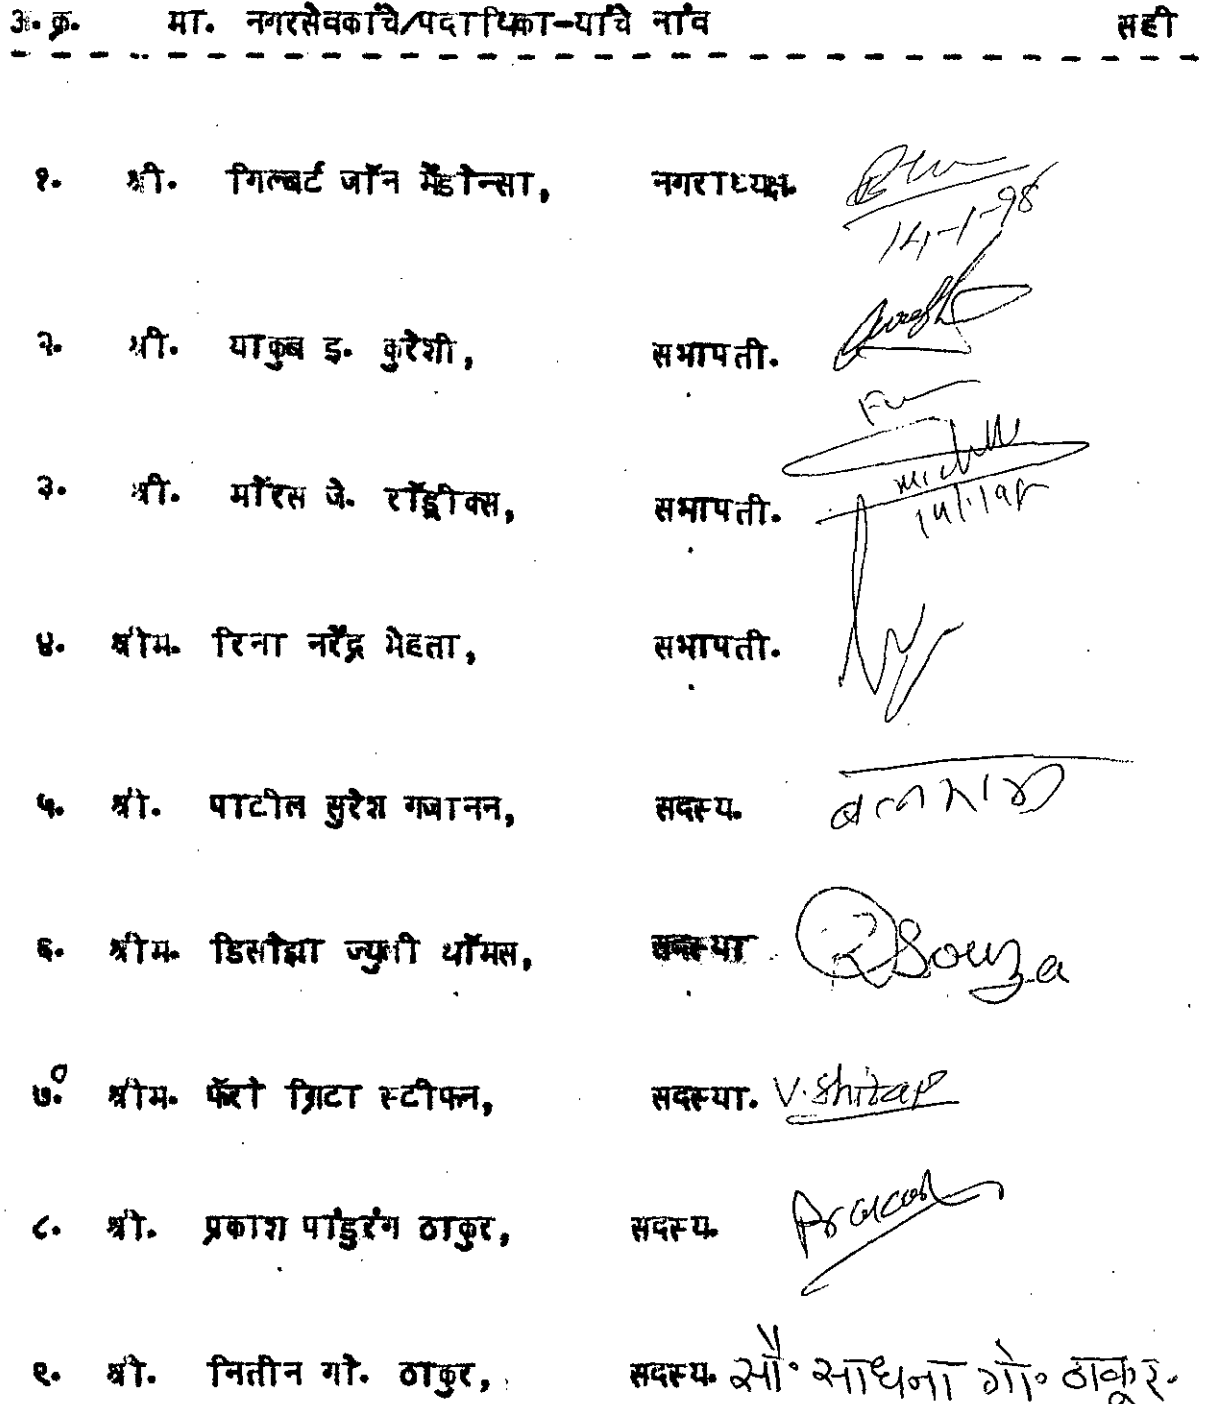 अ. क्र. मा. नगरसेवकांचे/पदाधिका-यांचे नांव सही
१. श्री. गिल्बर्ट जॉन मेंडोन्सा, नगराध्यक्ष.
14-1-98
२. श्री. याकुब इ. कुरेशी, सभापती.
३. श्री. मॉरस जे. रॉड्रीक्स, सभापती.
४. श्रीम. रिना नरेंद्र मेहता, सभापती.
५. श्री. पाटील सुरेश गजानन, सदस्य.
६. श्रीम. डिसोझा ज्युली थॉमस, सदस्या Souza
७. श्रीम. फॅरो ग्रिटा स्टीफन, सदस्या. V. Shitap
८. श्री. प्रकाश पांडुरंग ठाकुर, सदस्य.
९. श्री. नितीन गो. ठाकुर, सदस्य. सौ. साधना गो. ठाकूर.